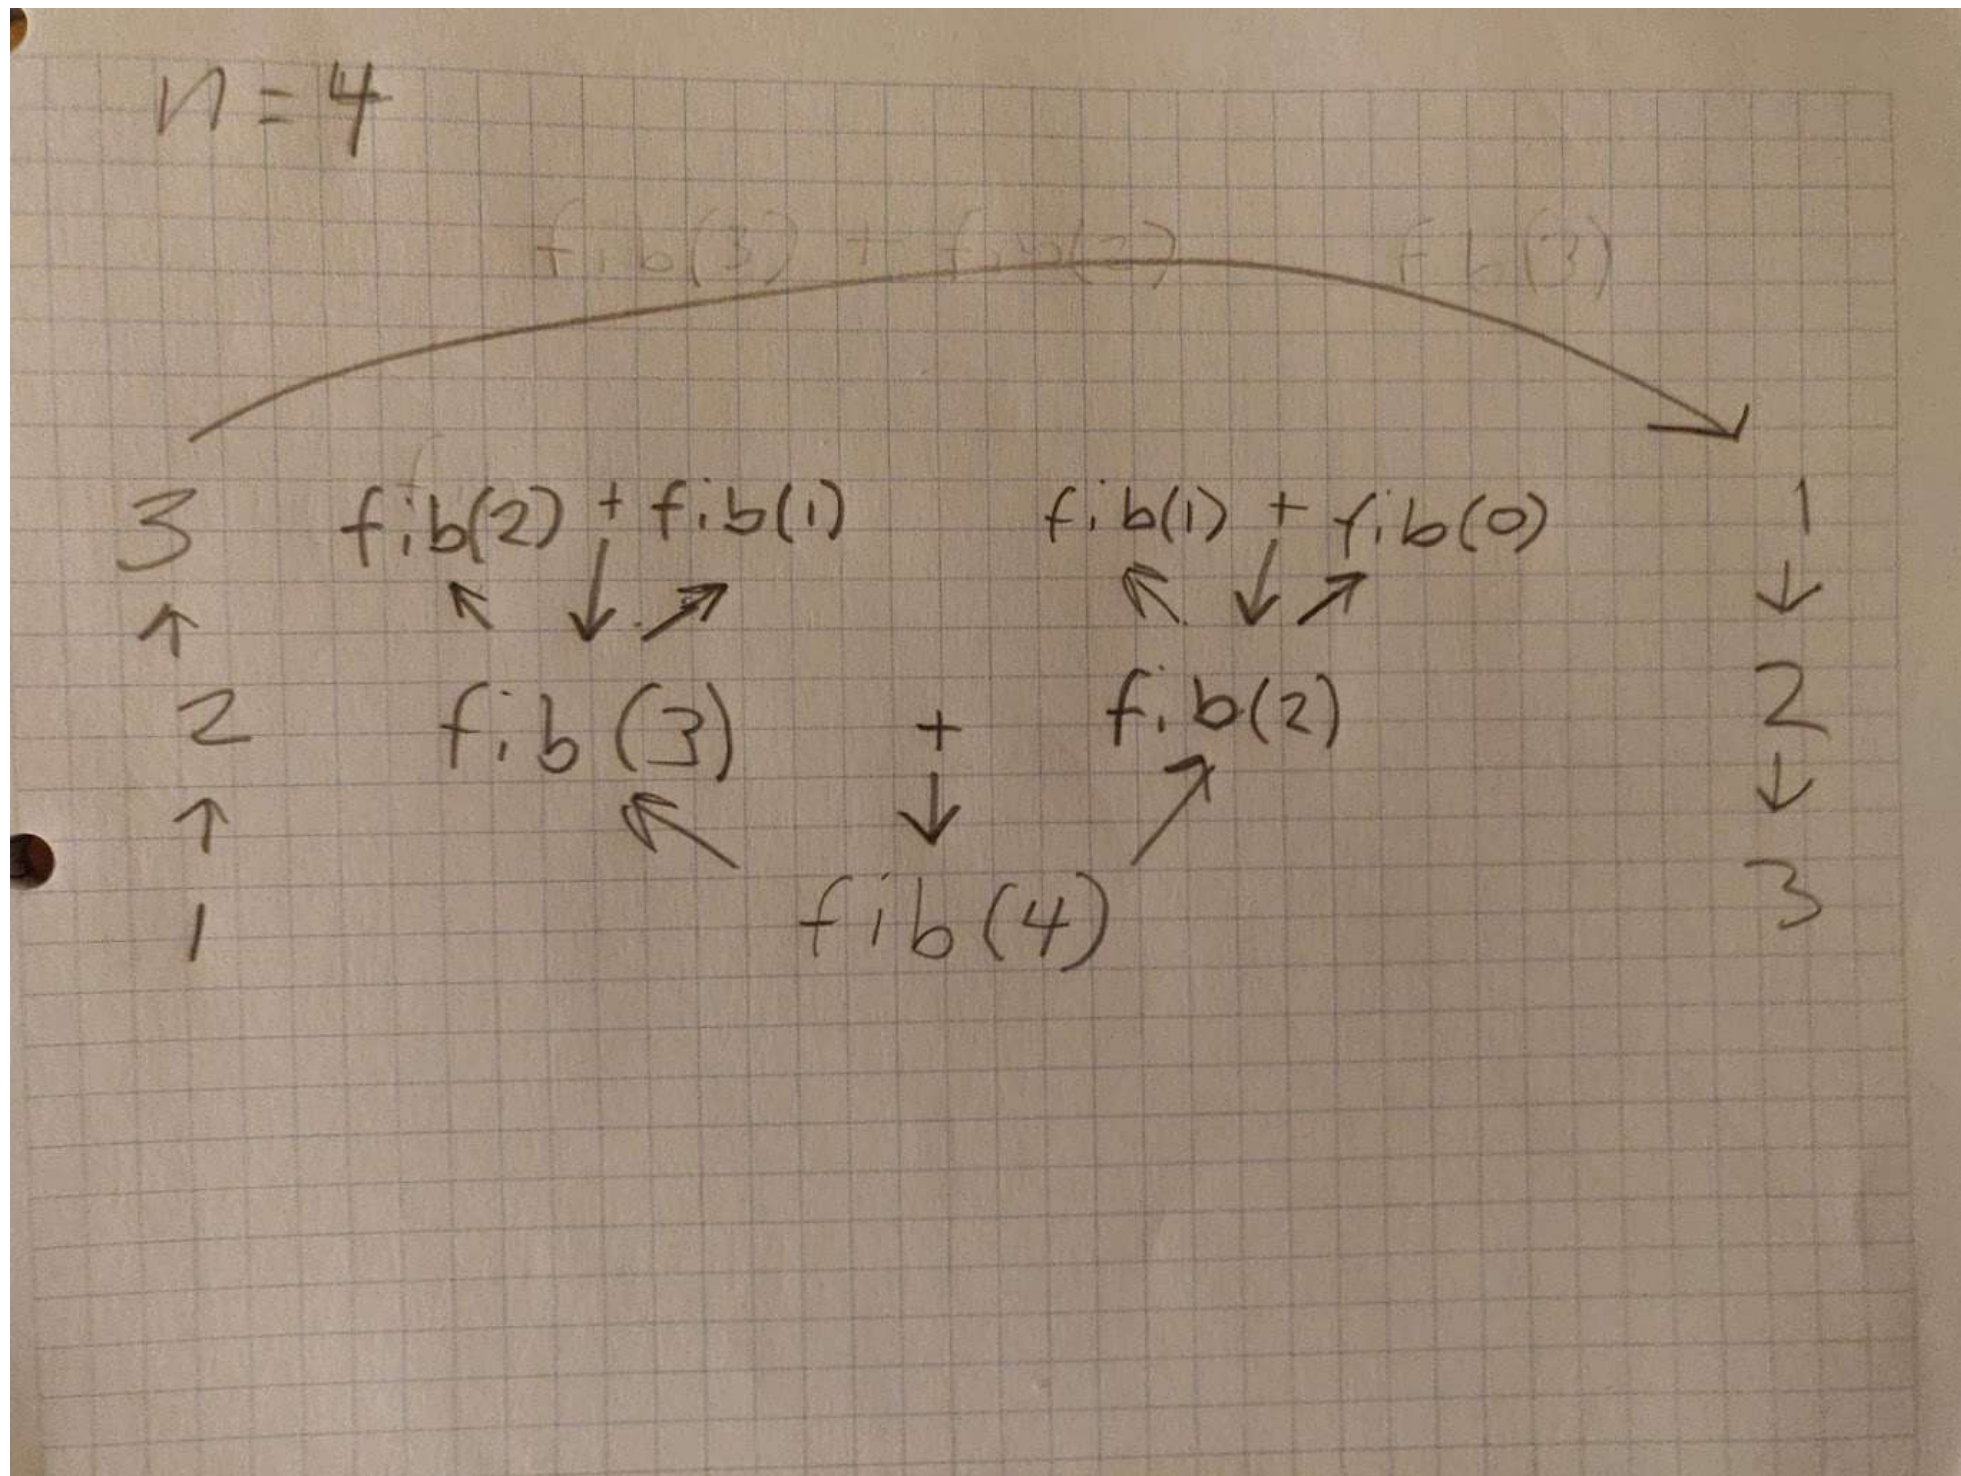 n = 4
fib(3) + fib(2) fib(3)
3 fib(2) + fib(1) fib(1) + fib(0) 1
↑ ↖ ↓ ↗ ↖ ↓ ↗ ↓
2 fib(3) + fib(2) 2
↑ ↖ ↓ ↗ ↓
1 fib(4) 3